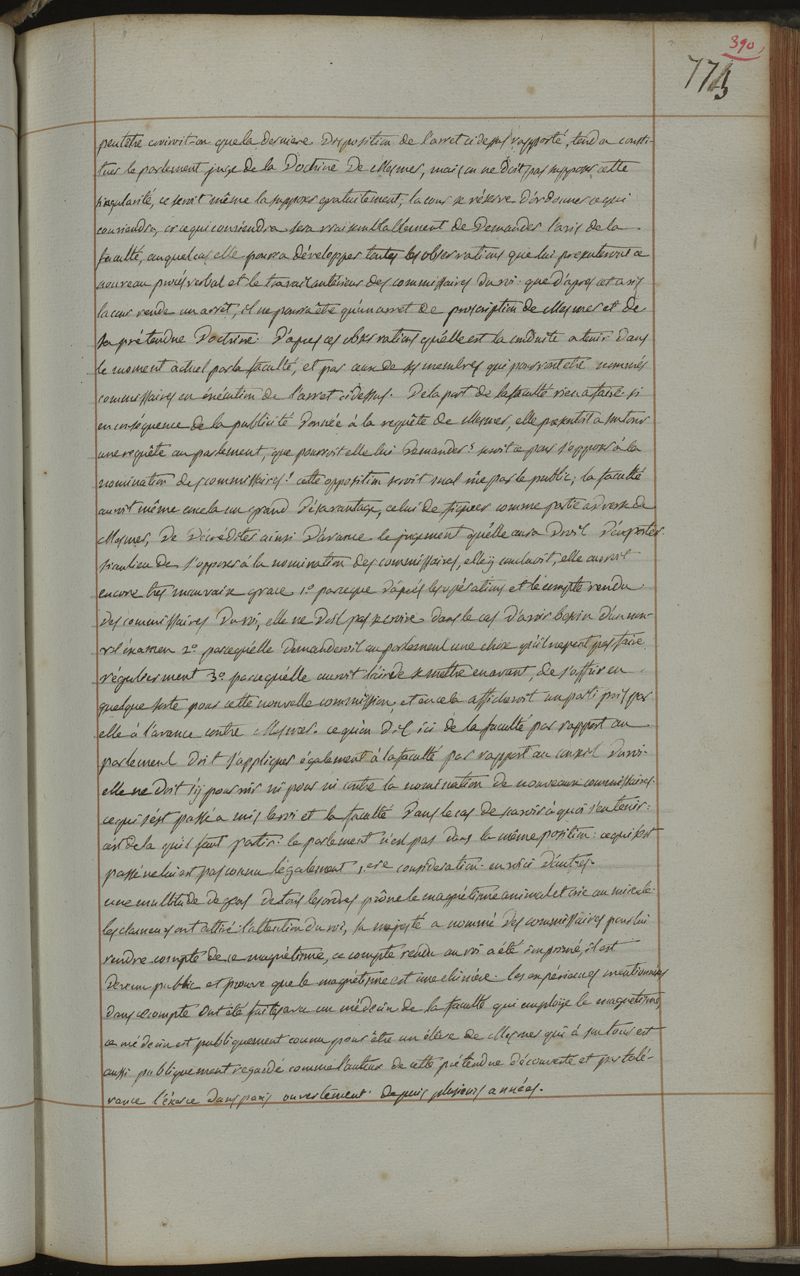 390
773
peutetre croiroit-on que la derniere disposition de l'arret ci dessus rapporté, tend a consti-
tuer le parlement juge de la Doctrine De Mesmer, mais on ne doit pas supposer cette
singularité, ce seroit même la supposer gratuitement, la cour se réserve d'ordonner ce qui
conviendra, or ce qui conviendra sera vraisemblablement de Demander l'avis de la
faculté, auquel cas elle pourra développer toutes les observations que lui presenteront ce
nouveau procés verbal et le travail antérieur des commissaires du roi. que d'apres cet avis
la cour rende un arret, il ne pourra être qu'un arret de proscription de Mesmer et de
sa prétendue Doctrine. D'apres ces observations quelle est la conduite a tenir dans
le moment actuel par la faculté, et par ceux de ses membres qui pourront etre nommés
commissaires en éxécution de l'arret ci dessus. De la part de la faculté rien a faire. si
en conséquence de la publicité donnée à la requête de Mesmer, elle presentoit a son tour
une requête au parlement, que pourroit elle lui demander? seroit ce pour s'opposer à la
nomination des commissaires? cette opposition seroit mal vüe par le public; la faculté
auroit même en cela un grand désavantage, celui de figurer comme partie adverse de
Mesmer, De Décréditer ainsi D'avance le jugement qu'elle aura Droit D'en porter.
si au lieu de s'opposer à la nomination des commissaires, elle y concluoit, elle auroit
encore tres mauvaise grace 1.° parceque d'apres les opérations et le compte rendu
Des commissaires Du roi, elle ne doit pas se croire dans le cas d'avoir besoin d'un nou-
vel éxamen 2.° parcequ'elle demanderoit au parlement une chose qu'il ne peut pas faire
régulierement 3.° parcequ'elle auroit l'air de se mettre en avant, de s'offrir en
quelque sorte pour cette nouvelle commission, et en cela afficheroit un parti pris par
elle à l'avance contre Mesmer. ce qu'on dit ici de la faculté par rapport au
parlement doit s'appliquer également à la faculté par rapport au conseil Du roi.
elle ne doit s'y pourvoir ni pour ni contre la nomination de nouveaux commissaires.
ce qui s'est passé a mis le roi et la faculté dans le cas de scavoir à quoi s'en tenir:
c'est de la qu'il faut partir: le parlement n'est pas dans la même position: ce qui s'est
passé ne lui est pas connu légalement, 1.ere consideration. en voici d'autres.
une multitude de gens de tous les ordres prône le magnétisme animal et crie au miracle.
les clameurs ont attiré l'attention du roi, sa majesté a nommé des commissaires pour lui
rendre compte de ce magnétisme, ce compte rendu au roi a été imprimé, il est
devenu public et prouve que le magnétisme est une chimère. les expériences mentionnées
dans ce compte ont été faites avec un médecin de la faculté qui employe le magnétisme,
ce médecin est publiquement connu pour être un éleve de Mesmer qui à son tour est
aussi publiquement regardé comme l'auteur de cette prétendue découverte et par tolé-
rance l'éxerce dans paris ouvertement depuis plusieurs années.